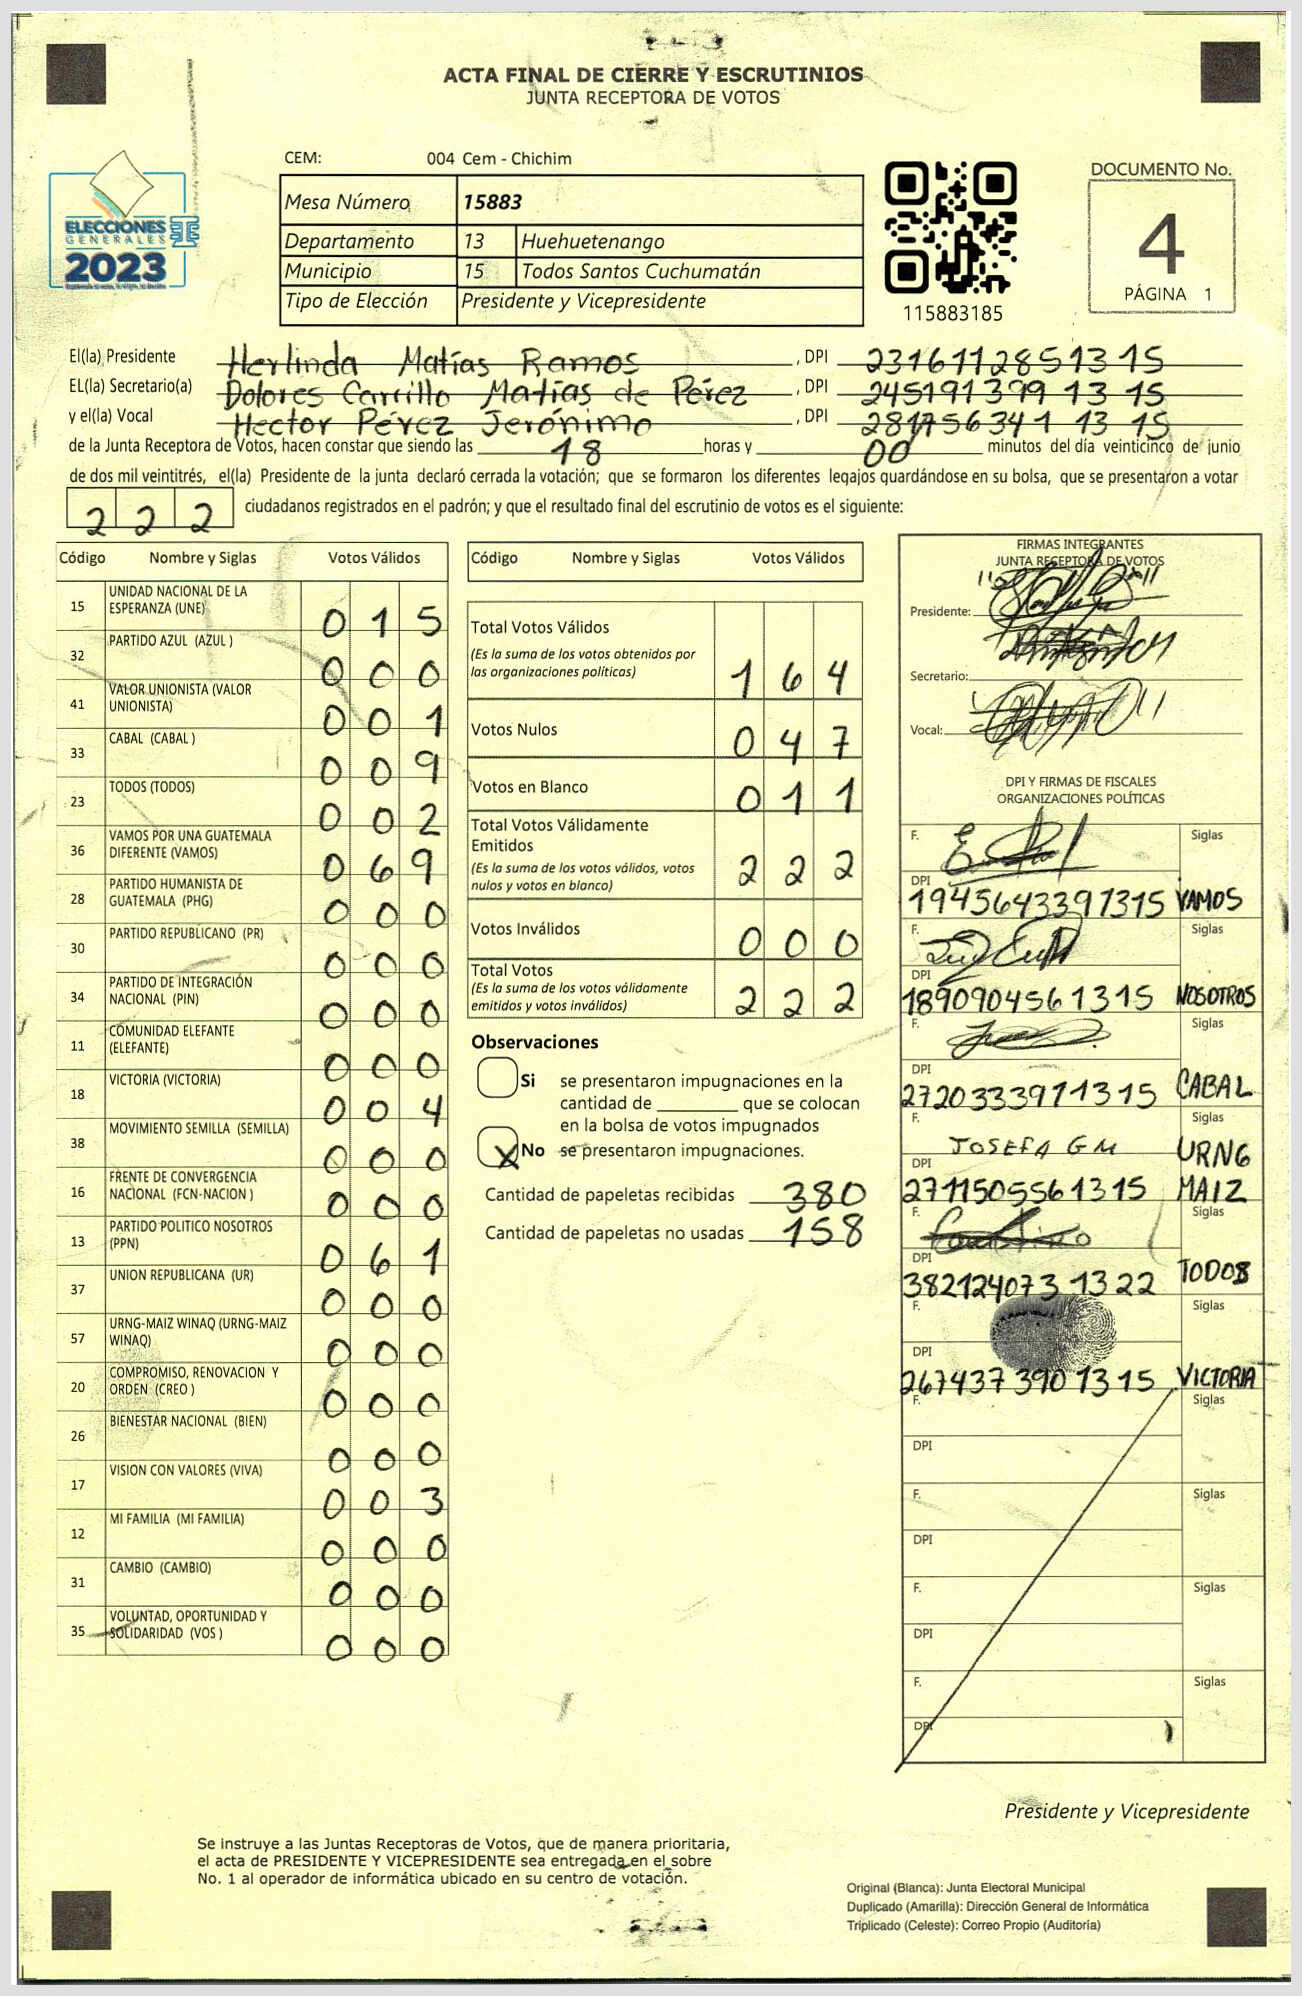 ACTA FINAL DE CIERRE Y ESCRUTINIOS
JUNTA RECEPTORA DE VOTOS
CEM: 004 Cem - Chichim
ELECCIONES
GENERALES
2023
Mesa Número 15883
Departamento 13 Huehuetenango
Municipio 15 Todos Santos Cuchumatán
Tipo de Elección Presidente y Vicepresidente
115883185
DOCUMENTO No.
4
PÁGINA 1
El(la) Presidente Herlinda Matías Ramos , DPI 231611285 13 15
EL(la) Secretario(a) Dolores Carrillo Matías de Pérez , DPI 245191399 13 15
y el(la) Vocal Hector Pérez Jerónimo , DPI 281756341 13 15
de la Junta Receptora de Votos, hacen constar que siendo las 18 horas y 00 minutos del día veinticinco de junio
de dos mil veintitrés, el(la) Presidente de la junta declaró cerrada la votación; que se formaron los diferentes legajos guardándose en su bolsa, que se presentaron a votar
222 ciudadanos registrados en el padrón; y que el resultado final del escrutinio de votos es el siguiente:
Código Nombre y Siglas Votos Válidos
15 UNIDAD NACIONAL DE LA ESPERANZA (UNE) 0 1 5
32 PARTIDO AZUL (AZUL ) 0 0 0
41 VALOR UNIONISTA (VALOR UNIONISTA) 0 0 1
33 CABAL (CABAL ) 0 0 9
23 TODOS (TODOS) 0 0 2
36 VAMOS POR UNA GUATEMALA DIFERENTE (VAMOS) 0 6 9
28 PARTIDO HUMANISTA DE GUATEMALA (PHG) 0 0 0
30 PARTIDO REPUBLICANO (PR) 0 0 0
34 PARTIDO DE INTEGRACIÓN NACIONAL (PIN) 0 0 0
11 COMUNIDAD ELEFANTE (ELEFANTE) 0 0 0
18 VICTORIA (VICTORIA) 0 0 4
38 MOVIMIENTO SEMILLA (SEMILLA) 0 0 0
16 FRENTE DE CONVERGENCIA NACIONAL (FCN-NACION ) 0 0 0
13 PARTIDO POLITICO NOSOTROS (PPN) 0 6 1
37 UNION REPUBLICANA (UR) 0 0 0
57 URNG-MAIZ WINAQ (URNG-MAIZ WINAQ) 0 0 0
20 COMPROMISO, RENOVACION Y ORDEN (CREO ) 0 0 0
26 BIENESTAR NACIONAL (BIEN) 0 0 0
17 VISION CON VALORES (VIVA) 0 0 3
12 MI FAMILIA (MI FAMILIA) 0 0 0
31 CAMBIO (CAMBIO) 0 0 0
35 VOLUNTAD, OPORTUNIDAD Y SOLIDARIDAD (VOS ) 0 0 0
Código Nombre y Siglas Votos Válidos
Total Votos Válidos
(Es la suma de los votos obtenidos por
las organizaciones políticas) 1 6 4
Votos Nulos 0 4 7
Votos en Blanco 0 1 1
Total Votos Válidamente
Emitidos
(Es la suma de los votos válidos, votos
nulos y votos en blanco) 2 2 2
Votos Inválidos 0 0 0
Total Votos
(Es la suma de los votos válidamente
emitidos y votos inválidos) 2 2 2
Observaciones
Si se presentaron impugnaciones en la
cantidad de ________ que se colocan
en la bolsa de votos impugnados
X No se presentaron impugnaciones.
Cantidad de papeletas recibidas 380
Cantidad de papeletas no usadas 158
FIRMAS INTEGRANTES
JUNTA RECEPTORA DE VOTOS
Presidente:
Secretario:
Vocal:
DPI Y FIRMAS DE FISCALES
ORGANIZACIONES POLÍTICAS
F. Siglas
DPI 1945643391315 VAMOS
F. Siglas
DPI 1890904561315 NOSOTROS
F. Siglas
DPI 2720333971315 CABAL
F. JOSEFA G M Siglas
DPI 2711505561315 URNG MAIZ
F. Siglas
DPI 382124073 1322 TODOS
F. Siglas
DPI 267437390 1315 VICTORIA
F. Siglas
DPI
F. Siglas
DPI
F. Siglas
DPI
F. Siglas
DPI
Presidente y Vicepresidente
Se instruye a las Juntas Receptoras de Votos, que de manera prioritaria,
el acta de PRESIDENTE Y VICEPRESIDENTE sea entregada en el sobre
No. 1 al operador de informática ubicado en su centro de votación.
Original (Blanca): Junta Electoral Municipal
Duplicado (Amarilla): Dirección General de Informática
Triplicado (Celeste): Correo Propio (Auditoría)